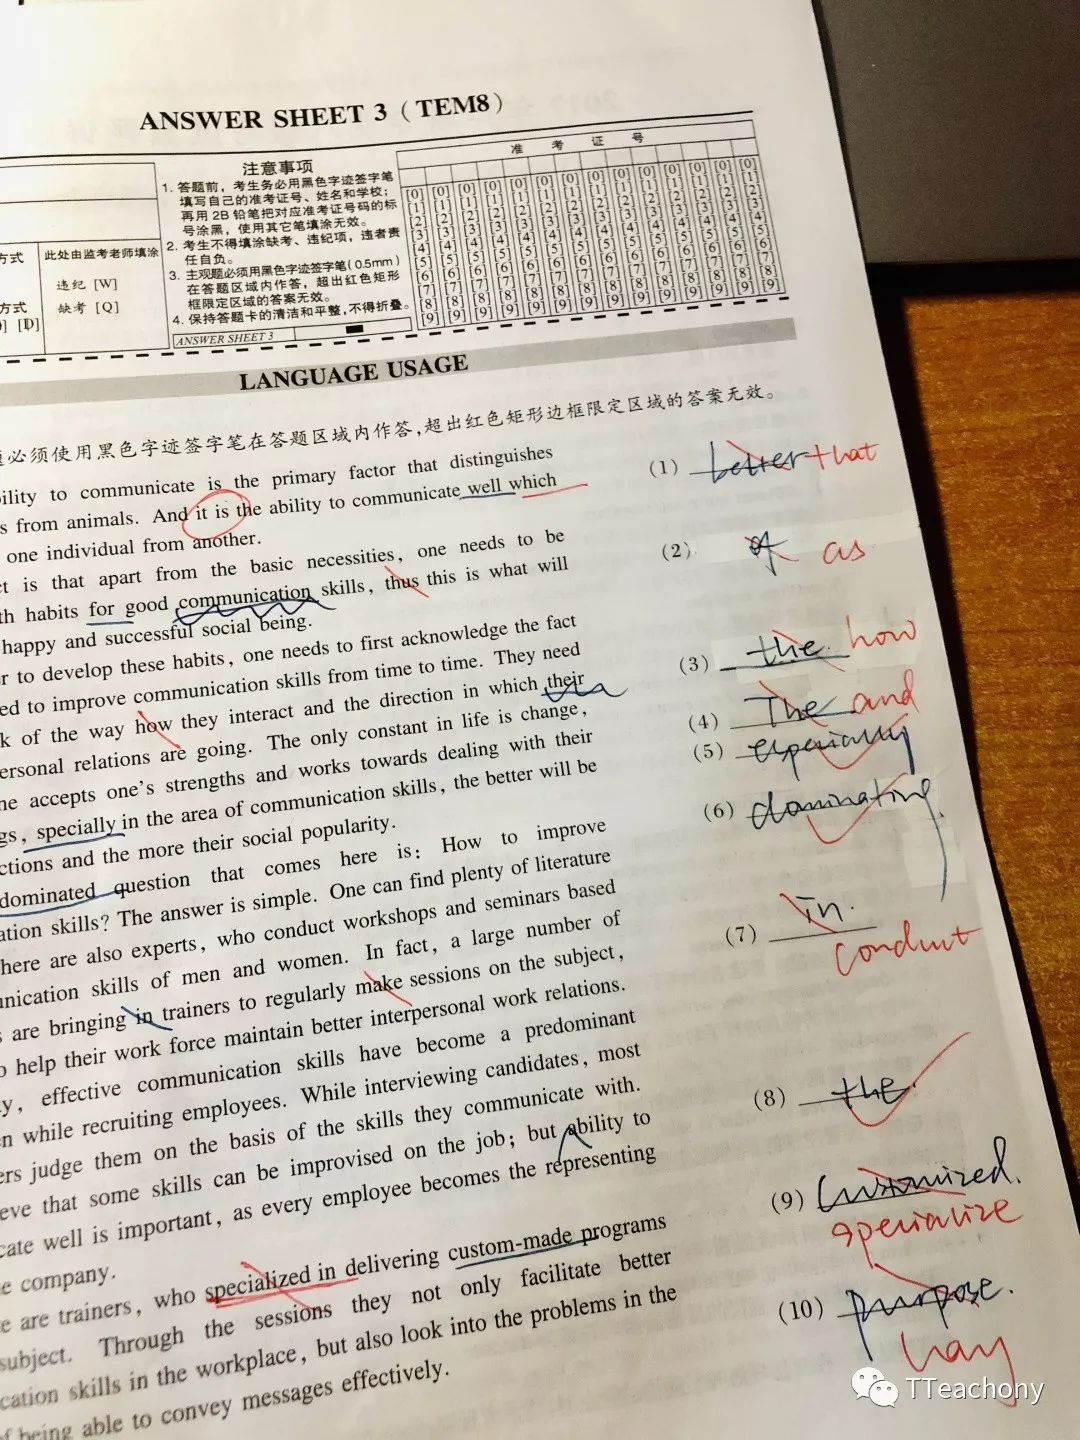 ANSWER SHEET 3 (TEM8)
注意事项
1. 答题前,考生务必用黑色字迹签字笔
填写自己的准考证号、姓名和学校;
再用 2B 铅笔把对应准考证号码的标
号涂黑,使用其它笔填涂无效。
2. 考生不得填涂缺考、违纪项,违者责
任自负。
3. 主观题必须用黑色字迹签字笔(0.5mm)
在答题区域内作答,超出红色矩形
框限定区域的答案无效。
4. 保持答题卡的清洁和平整,不得折叠。
ANSWER SHEET 3
方式
此处由监考老师填涂
违纪 [W]
缺考 [Q]
方式
[D]
准 考 证 号
[0] [0] [0] [0] [0] [0] [0] [0] [0] [0] [0] [0] [0] [0]
[1] [1] [1] [1] [1] [1] [1] [1] [1] [1] [1] [1] [1] [1]
[2] [2] [2] [2] [2] [2] [2] [2] [2] [2] [2] [2] [2] [2]
[3] [3] [3] [3] [3] [3] [3] [3] [3] [3] [3] [3] [3] [3]
[4] [4] [4] [4] [4] [4] [4] [4] [4] [4] [4] [4] [4] [4]
[5] [5] [5] [5] [5] [5] [5] [5] [5] [5] [5] [5] [5] [5]
[6] [6] [6] [6] [6] [6] [6] [6] [6] [6] [6] [6] [6] [6]
[7] [7] [7] [7] [7] [7] [7] [7] [7] [7] [7] [7] [7] [7]
[8] [8] [8] [8] [8] [8] [8] [8] [8] [8] [8] [8] [8] [8]
[9] [9] [9] [9] [9] [9] [9] [9] [9] [9] [9] [9] [9] [9]
LANGUAGE USAGE
必须使用黑色字迹签字笔在答题区域内作答,超出红色矩形边框限定区域的答案无效。
ility to communicate is the primary factor that distinguishes
s from animals. And it is the ability to communicate well which (1) better that
one individual from another.
ct is that apart from the basic necessities, one needs to be
th habits for good communication skills, thus this is what will (2) of as
happy and successful social being.
r to develop these habits, one needs to first acknowledge the fact
ed to improve communication skills from time to time. They need
k of the way how they interact and the direction in which their (3) the how
ersonal relations are going. The only constant in life is change, (4) The and
ne accepts one's strengths and works towards dealing with their
gs, specially in the area of communication skills, the better will be (5) especially
ctions and the more their social popularity.
dominated question that comes here is: How to improve (6) dominating
ation skills? The answer is simple. One can find plenty of literature
here are also experts, who conduct workshops and seminars based
nication skills of men and women. In fact, a large number of
s are bringing in trainers to regularly make sessions on the subject, (7) in conduct
o help their work force maintain better interpersonal work relations.
y, effective communication skills have become a predominant
n while recruiting employees. While interviewing candidates, most
ers judge them on the basis of the skills they communicate with.
eve that some skills can be improvised on the job; but ability to (8) the
cate well is important, as every employee becomes the representing
e company.
e are trainers, who specialized in delivering custom-made programs (9) Customized. specialize
subject. Through the sessions they not only facilitate better
cation skills in the workplace, but also look into the problems in the (10) purpose. way
f being able to convey messages effectively.
TTeachony